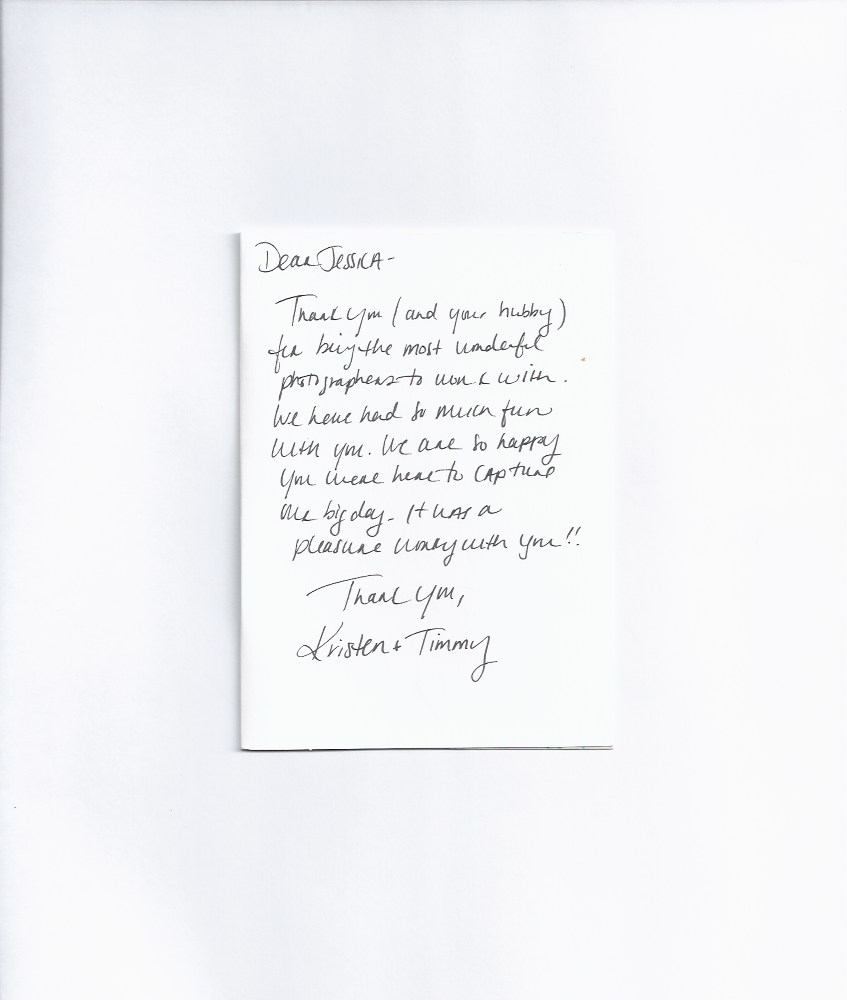 Dear Jessica-
Thank you (and your hubby)
for being the most wonderful
photographers to work with.
We have had so much fun
with you. We are so happy
you were here to capture
our big day. It was a
pleasure working with you!!
Thank you,
Kristen + Timmy